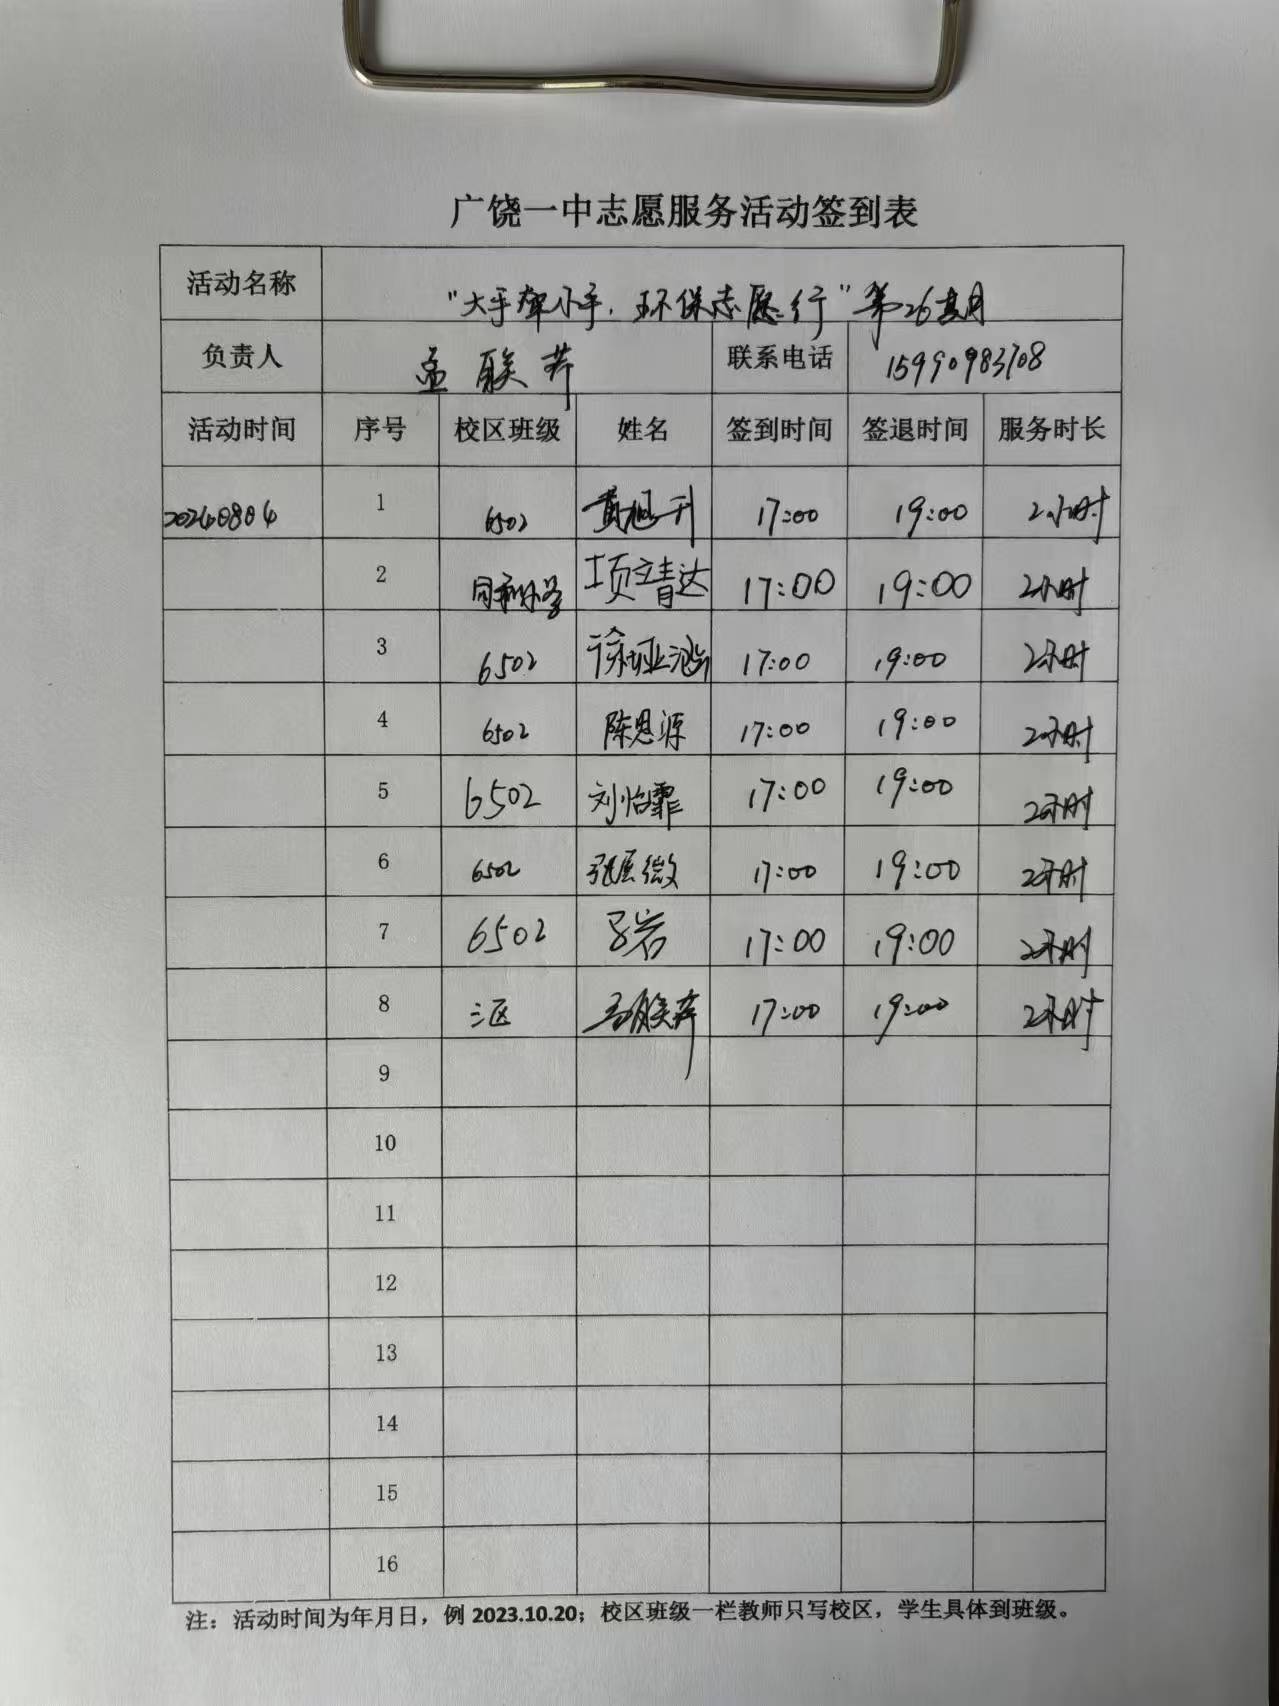 广饶一中志愿服务活动签到表
活动名称 “大手牵小手，环保志愿行”第26期
负责人 孟联芹 联系电话 15990983708
活动时间 序号 校区班级 姓名 签到时间 签退时间 服务时长
20240804 1 6502 17:00 19:00 2小时
2 同和小学 项靖达 17:00 19:00 2小时
3 6502 徐亚涵 17:00 19:00 2小时
4 6502 陈思源 17:00 19:00 2小时
5 6502 刘怡霏 17:00 19:00 2小时
6 6502 17:00 19:00 2小时
7 6502 17:00 19:00 2小时
8 三区 孟联芹 17:00 19:00 2小时
9
10
11
12
13
14
15
16
注：活动时间为年月日，例 2023.10.20；校区班级一栏教师只写校区，学生具体到班级。